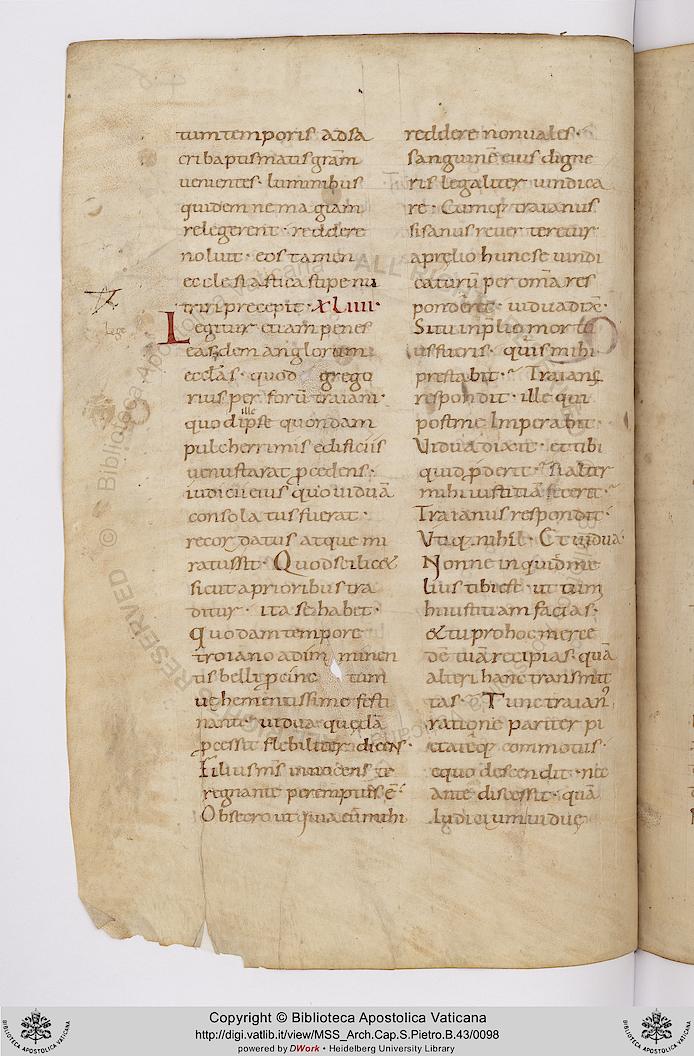 tum temporis ad sa
cri baptismatis gram̄
uenientes· luminibus
quidem ne magiam
relegerent· reddere
noluit· eos tamen
ecclesiastica stipe nu
triri precepit· XLIIII·
Legitur etiam penes
easdem anglorum
eccłas· quod grego
rius per forū traiani·
quod ipse ille quondam
pulcherrimis edificiis
uenustarat ꝓcedens·
iudicii eius quo uiduā
consolatus fuerat·
recordatus atque mi
ratus sit· Quod scilicet
sicut a prioribus tra
ditur· ita se habet·
Quodam tempore
troiano ad im minen
tis belli ꝓcinc tum
uehementissime festi
nante· uidua quedā
ꝓcessit flebiliter dicens·
Filius m̄s innocens te
regnante peremptus ē·
Obsecro ut quia eū mihi
reddere non uales·
sanguinē eius digne
ris legaliter uindica
re· Cumq; traianus
si sanus reuerteretur
a prelio hunc se uindi
caturū per om̄a res
ponderet· uidua dix̄·
Si tu in p̄lio mortu
us fueris· quis mihi
prestabit· Traianus
respondit· ille qui
post me Imperabit·
Uidua dixit· et tibi
quid ꝓderit· si alter
mihi iustitiā fecerit·
Traianus respondit·
Utiq; nihil· Et uidua·
Nonne inquid me
lius tibi est· ut tum
hi iustitiam facias·
&tu pro hoc merce
dē tuā recipias· quā
alteri hanc transmit
tas· Tunc traian᷒
ratione pariter pi
etateq; commotus·
equo descendit· nec
ante discessit· quā
Iudicium uidue
Lege
ALL RIGHTS RESERVED © Biblioteca Apostolica Vaticana
BIBLIOTECA APOSTOLICA VATICANA
Copyright © Biblioteca Apostolica Vaticana
http://digi.vatlib.it/view/MSS_Arch.Cap.S.Pietro.B.43/0098
powered by DWork • Heidelberg University Library
BIBLIOTECA APOSTOLICA VATICANA